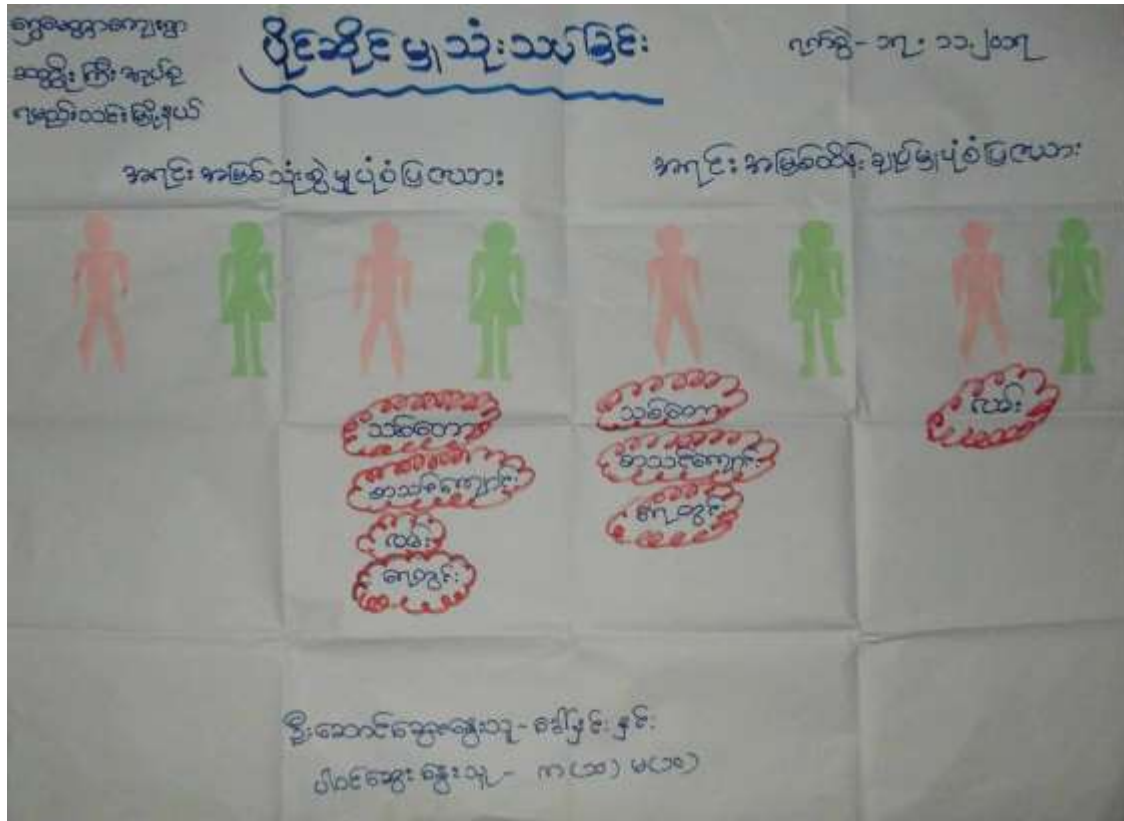 ရွှေမေတ္တာကျေးရွာ
ဆူးဖြိုးကြီးအုပ်စု
ရမည်းသင်းမြို့နယ်
ပိုင်ဆိုင်မှုသုံးသပ်ခြင်း
ရက်စွဲ - ၁၇.၁၁.၂၀၁၇
အရင်းအမြစ်သုံးစွဲမှုပုံစံပြဇယား
အရင်းအမြစ်ထိန်းချုပ်မှုပုံစံပြဇယား
သစ်တော
စာသင်ကျောင်း
လမ်း
ရေတွင်း
သစ်တော
စာသင်ကျောင်း
ရေတွင်း
လမ်း
ဦးဆောင်ဆွေးနွေးသူ - ဒေါ်နှင်းနှင်း
ပါဝင်ဆွေးနွေးသူ - က(၁၁) မ(၁၀)